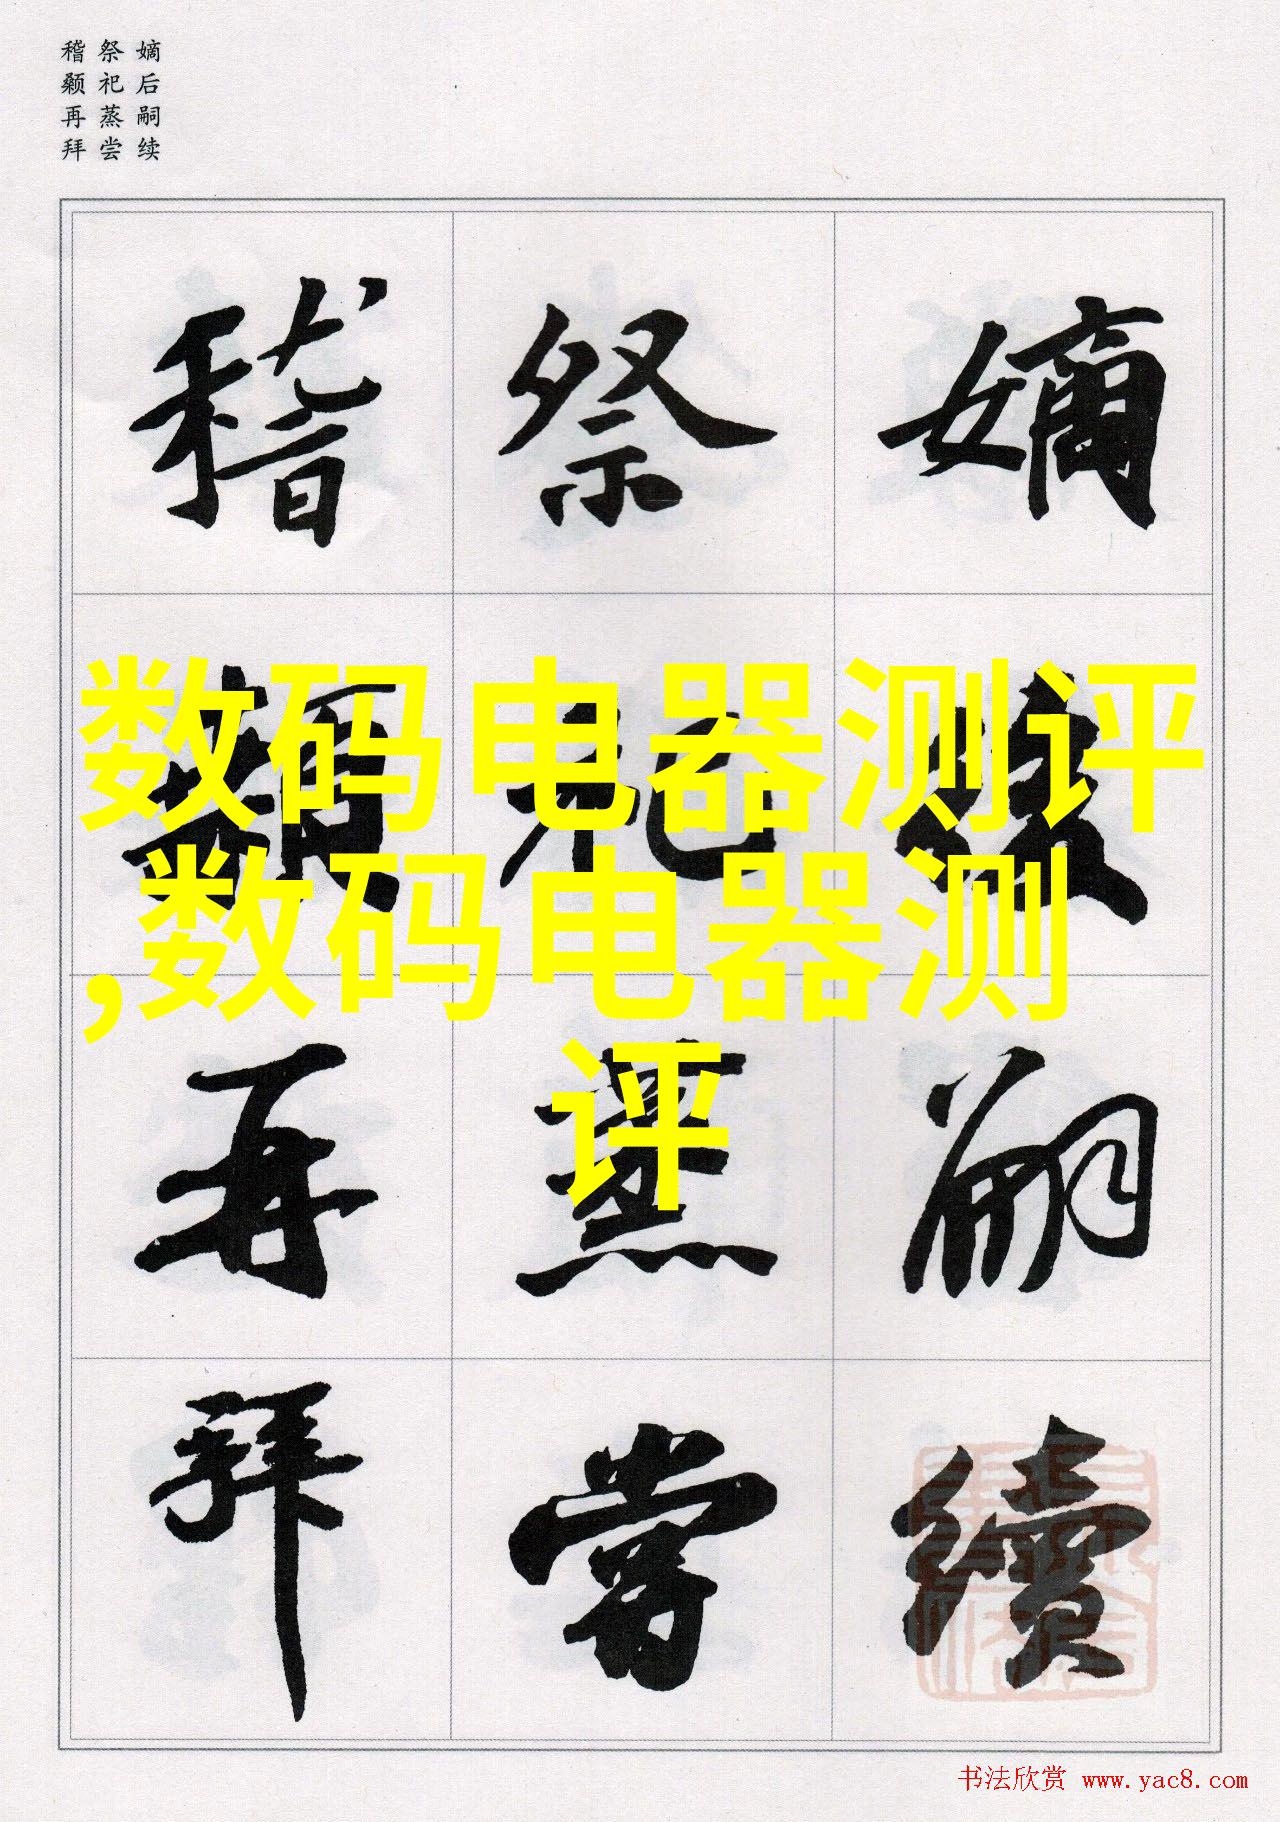 嫡后嗣续
祭祀蒸尝
稽颡再拜
嫡後嗣續
祭祀蒸嘗
稽顙再拜
数码电器测评
,数码电器测
评
书法欣赏 www.yac8.com